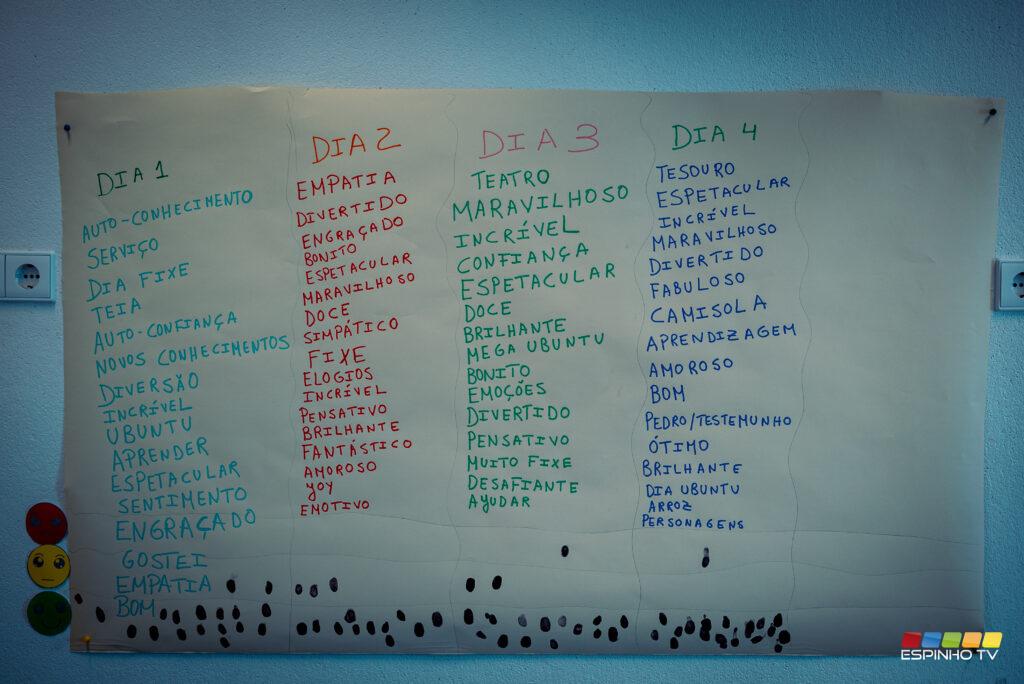 DIA 1
AUTO-CONHECIMENTO
SERVIÇO
DIA FIXE
TEIA
AUTO-CONFIANÇA
NOVOS CONHECIMENTOS
DIVERSÃO
INCRÍVEL
UBUNTU
APRENDER
ESPETACULAR
SENTIMENTO
ENGRAÇADO
GOSTEI
EMPATIA
BOM
DIA 2
EMPATIA
DIVERTIDO
ENGRAÇADO
BONITO
ESPETACULAR
MARAVILHOSO
DOCE
SIMPÁTICO
FIXE
ELOGIOS
INCRÍVEL
PENSATIVO
BRILHANTE
FANTÁSTICO
AMOROSO
YOY
EMOTIVO
DIA 3
TEATRO
MARAVILHOSO
INCRÍVEL
CONFIANÇA
ESPETACULAR
DOCE
BRILHANTE
MEGA UBUNTU
BONITO
EMOÇÕES
DIVERTIDO
PENSATIVO
MUITO FIXE
DESAFIANTE
AYUDAR
DIA 4
TESOURO
ESPETACULAR
INCRÍVEL
MARAVILHOSO
DIVERTIDO
FABULOSO
CAMISOLA
APRENDIZAGEM
AMOROSO
BOM
PEDRO/TESTEMUNHO
ÓTIMO
BRILHANTE
DIA UBUNTU
ARROZ
PERSONAGENS
ESPINHO TV